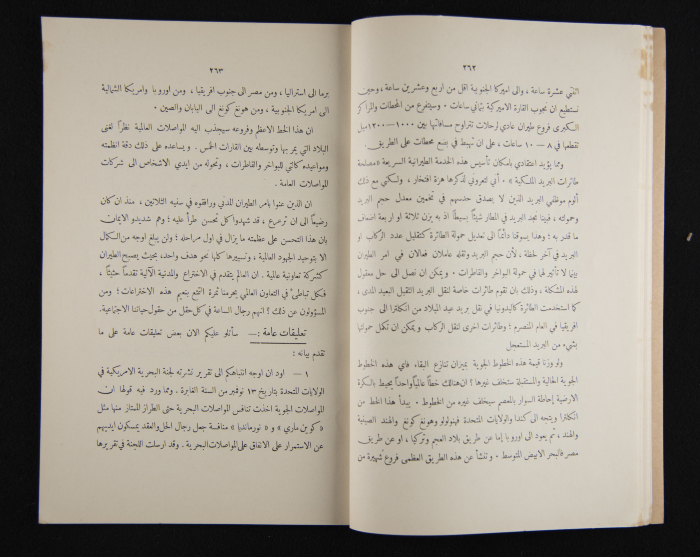 ٢٦٢
اثنتي عشرة ساعة ، والى اميركا الجنوبية اقل من اربع وعشرين ساعة ، وحين
نستطيع ان نجوب القارة الاميركية بثماني ساعات . وسيتفرع من المحطات والمراكز
الكبرى فروع طيران عادي لرحلات تتراوح مسافاتها بين ١٠٠٠ — ١٢٠٠ ميل
تقطعها في ٨ — ١٠ ساعات ، على ان تهبط في بضع محطات على الطريق .
ومما يؤيد اعتقادي بامكان تأسيس هذه الخدمة الطيرانية السريعة « مصلحة
طائرات البريد الملكية » . أني لتعروني لذكرها هزة افتخار ، ولكني مع ذلك
ألوم موظفي البريد الذين لا يصدق حدسهم في تخمين معدل حجم البريد
وحمولته ، فبينا نجد البريد في المطار شيئاً بسيطاً اذ به يزن ثلاثة او اربعة اضعاف
ما قدر به ؛ وهذا يسوقنا دائماً الى تعديل حمولة الطائرة كتقليل عدد الركاب او
البريد في آخر لحظة ، لأن حجم البريد وثقله عاملان فعالان في امر الطيران
بينما لا تأثير لها في حمولة البواخر والقاطرات . ويمكن ان نصل الى حل معقول
لهذه المشكلة ، وذلك بان تقوم طائرات خاصة لنقل البريد الثقيل البعيد المدى ،
كما استخدمت الطائرة كاليدونيا في نقل بريد عيد الميلاد من انكلترا الى جنوب
افريقيا في العام المنصرم ؛ وطائرات اخرى لنقل الركاب ويمكن ان تكمل حمولتها
بشيء من البريد المستعجل
ولو وزنا قيمة هذه الخطوط الجوية بميزان تنازع البقاء فاي هذه الخطوط
الجوية الحالية والمستقبلة ستخلف غيرها ؟ ان هنالك خطاً عالمياً واحداً يحيط بالكرة
الارضية إحاطة السوار بالمعصم سيخلف غيره من الخطوط . يبدأ هذا الخط من
انكلترا ويتجه الى كندا والولايات المتحدة فهنولولو وهونغ كونغ والهند الصينية
والهند ، ثم يعود الى اوروبا إما عن طريق بلاد العجم وتركيا ، او عن طريق
مصر فالبحر الابيض المتوسط . وتنشأ عن هذه الطريق العظمى فروع شهيرة من
٢٦٣
برما الى استراليا ، ومن مصر الى جنوب افريقيا ، ومن اوروبا وامريكا الشمالية
الى امريكا الجنوبية ، ومن هونغ كونغ الى اليابان والصين .
ان هذا الخط الاعظم وفروعه سيجذب اليه المواصلات العالمية نظراً لغنى
البلاد التي يمر بها وتوسطه بين القارات الخمس . ويساعده على ذلك دقة انظمته
ومواعيده كالتي للبواخر والقاطرات ، وتحوله من ايدي الاشخاص الى شركات
للمواصلات العامة .
ان الذين عنوا بامر الطيران المدني ورافقوه في سنيه الثلاثين ، منذ ان كان
رضيعاً الى ان ترعرع ، قد شهدوا كل تحسن طرأ عليه ؛ وهم شديدو الايمان
بان هذا التحسن على عظمته ما يزال في اول مراحله ؛ ولن يبلغ اوجه من الكمال
الا بتوحيد الجهود العالمية ، وتسييرها كلها نحو هدف واحد ، بحيث يصبح الطيران
كشركة تعاونية عالمية . ان العالم يتقدم في الاختراع والمدنية الآلية تقدماً حثيثاً ،
فكل تباطئ في التعاون العالمي يحرمنا ثمرة التمتع بنعيم هذه الاختراعات ؛ ومن
المسؤولون عن ذلك ؟ انهم رجال الساعة في كل حقل من حقول حياتنا الاجتماعية .
تعليقات عامة : — سأتلو عليكم الآن بعض تعليقات عامة على ما
تقدم بيانه :
١ — اود ان اوجه انتباهكم الى تقرير نشرته لجنة البحرية الامريكية في
الولايات المتحدة بتاريخ ١٣ نوفمبر من السنة الغابرة . ومما ورد فيه قولها ان
المواصلات الجوية اخذت تنافس المواصلات البحرية حتى الطراز الممتاز منها مثل
« كوين ماري » و « نورماندي » منافسة جعل رجال الحل والعقد يمسكون ايديهم
عن الاستمرار على الانفاق على المواصلات البحرية . وقد ارسلت اللجنة في تقريرها